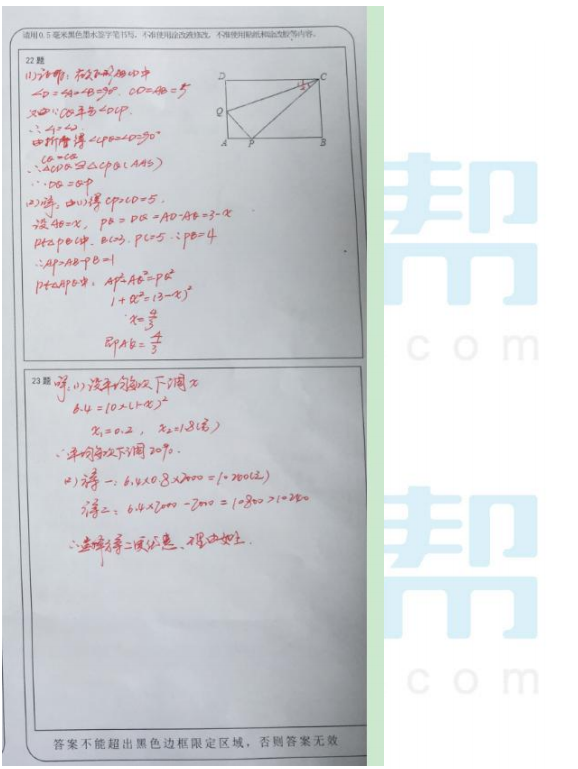 请用0.5毫米黑色墨水签字笔书写，不准使用涂改液修改，不准使用贴纸和涂改胶等内容。
22题
(1)证明：在矩形ABCD中
∠D=∠A=∠B=90° CD=AB=5
∴∠1=∠2
由折叠得∠CPQ=∠D=90°
CQ=CQ
∴△CDQ≌△CPQ(AAS)
∴DQ=QP
(2)解：由(1)得CP=CD=5.
设AQ=x, PQ=DQ=AD-AQ=3-x
Rt△PBC中, BC=3, PC=5 ∴PB=4
∴AP=AB-PB=1
Rt△APQ中, AP²+AQ²=PQ²
1+x²=(3-x)²
x=4/3
即AQ=4/3
D C
Q
A P B
23题 解:(1)设平均每次下调x
6.4=10×(1-x)²
x₁=0.2, x₂=1.8(舍)
∴平均每次下调20%.
(2)
6.4×0.8×2000=10240(元)
6.4×2000-2000=10800>10240
答案不能超出黑色边框限定区域，否则答案无效
帮
com
帮
com